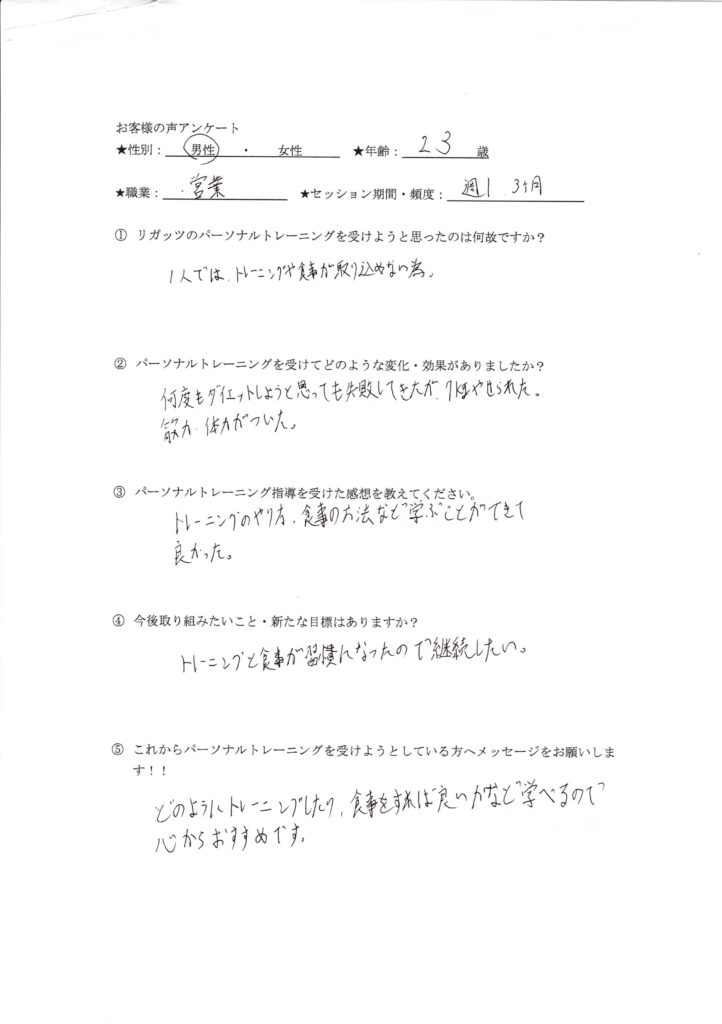 お客様の声アンケート
★性別： 男性 ・ 女性 ★年齢： 23 歳
★職業： 営業 ★セッション期間・頻度： 週1 3ヶ月
① リガッツのパーソナルトレーニングを受けようと思ったのは何故ですか？
1人では、トレーニングや食事が取り込めない為。
② パーソナルトレーニングを受けてどのような変化・効果がありましたか？
何度もダイエットしようと思っても失敗してきたが、7kgやせられた。
筋力、体力がついた。
③ パーソナルトレーニング指導を受けた感想を教えてください。
トレーニングのやり方、食事の方法など学ぶことができて
良かった。
④ 今後取り組みたいこと・新たな目標はありますか？
トレーニングと食事が習慣になったので継続したい。
⑤ これからパーソナルトレーニングを受けようとしている方へメッセージをお願いしま
す！！
どのようにトレーニングしたり、食事をすれば良いかなど学べるので
心からおすすめです。